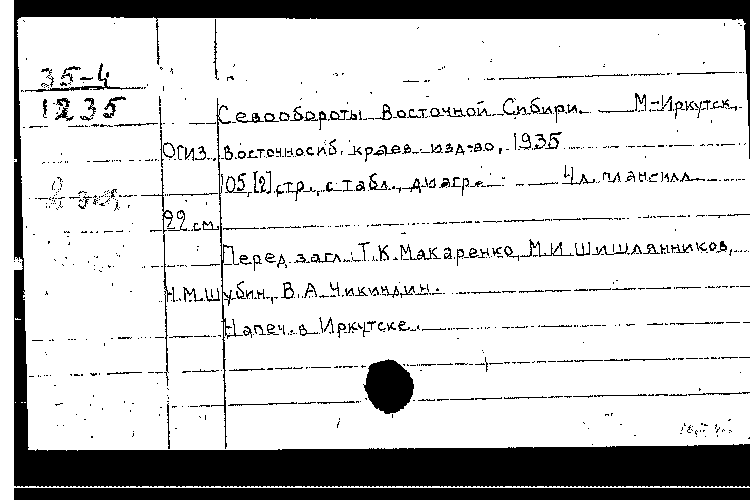 35-4
1235
Севообороты Восточной Сибири. М-Иркутск,
ОГИЗ. Восточносиб. краев. изд-во, 1935
105,[2] стр., с табл., диагр. 4 л. план. илл.
22 см.
Перед загл.: Т.К. Макаренко, М.И. Шишлянников,
Н.М. Шубин, В.А. Чикиндин.
Напеч. в Иркутске.
2 экз.